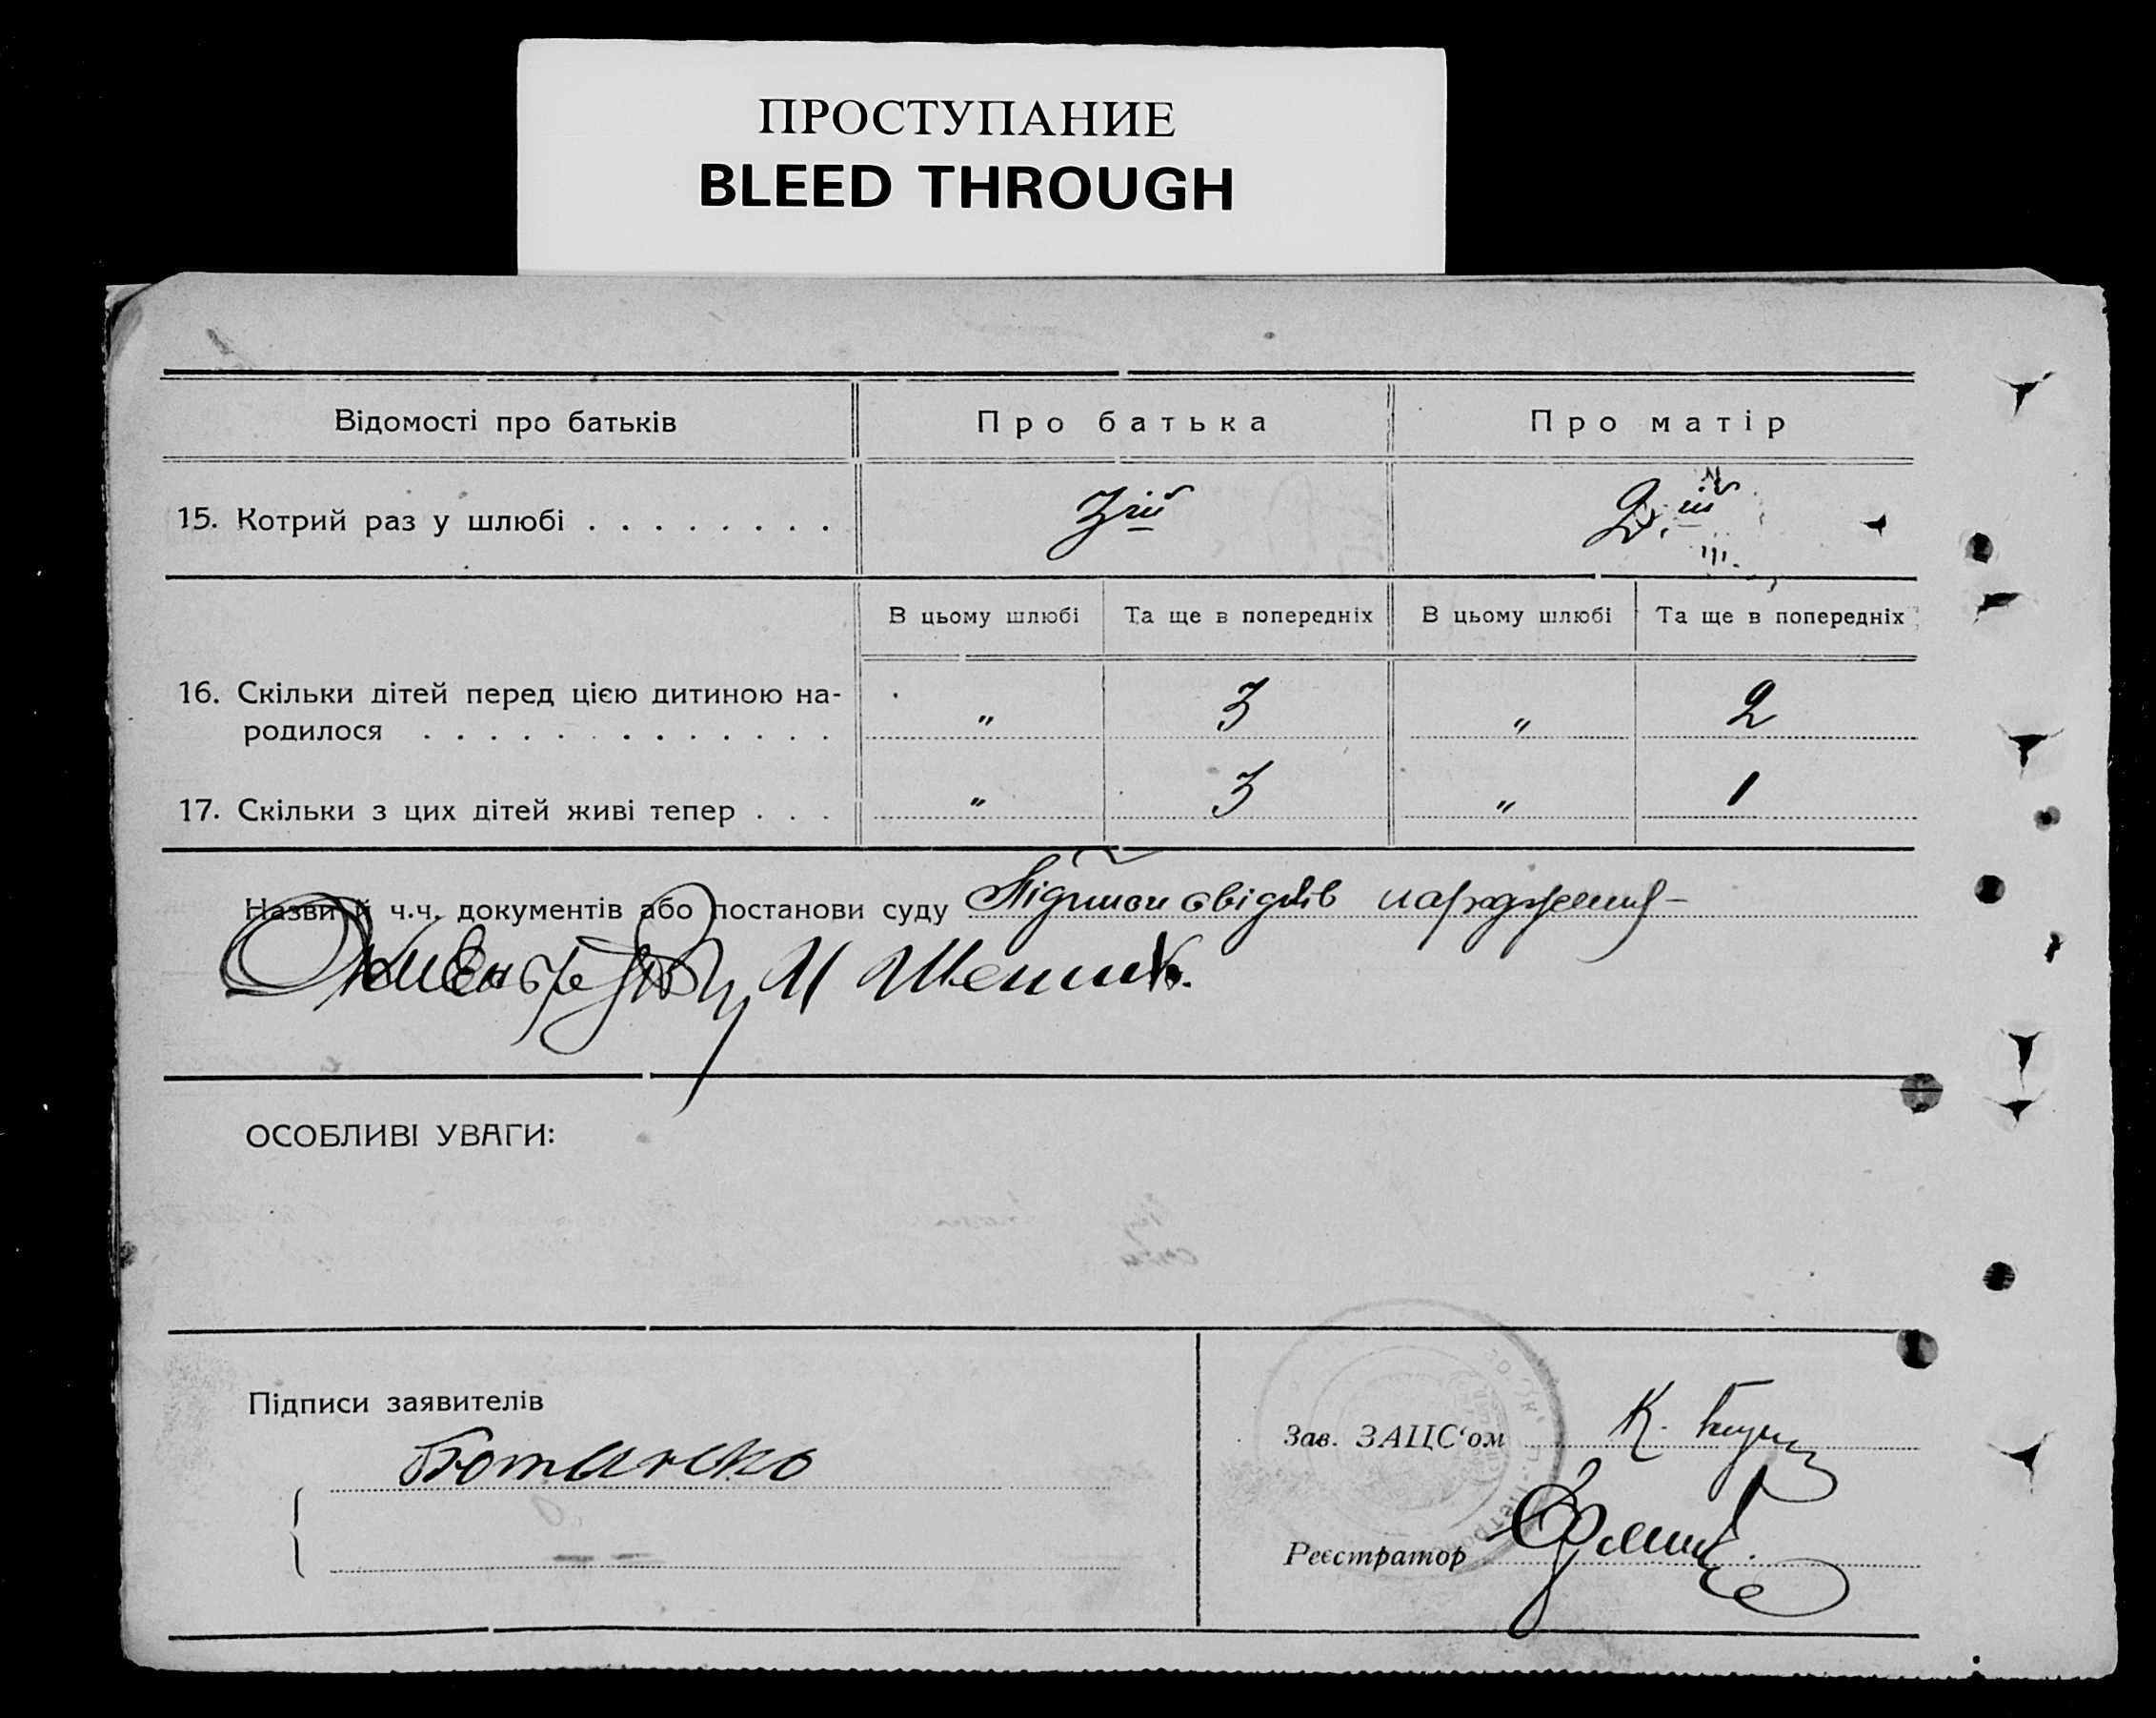 ПРОСТУПАНИЕ
BLEED THROUGH
Відомості про батьків
Про батька
Про матір
15. Котрий раз у шлюбі . . . . . . . .
3ій
В цьому шлюбі
Та ще в попередніх
В цьому шлюбі
Та ще в попередніх
16. Скільки дітей перед цією дитиною на-
родилося . . . . . . . . . . . . .
„
3
„
2
17. Скільки з цих дітей живі тепер . . .
„
3
„
1
Назви й ч.ч. документів або постанови суду Підписи свідків народження –
ОСОБЛИВІ УВАГИ:
Підписи заявителів
Зав. ЗАЦС‘ом К.
Реєстратор